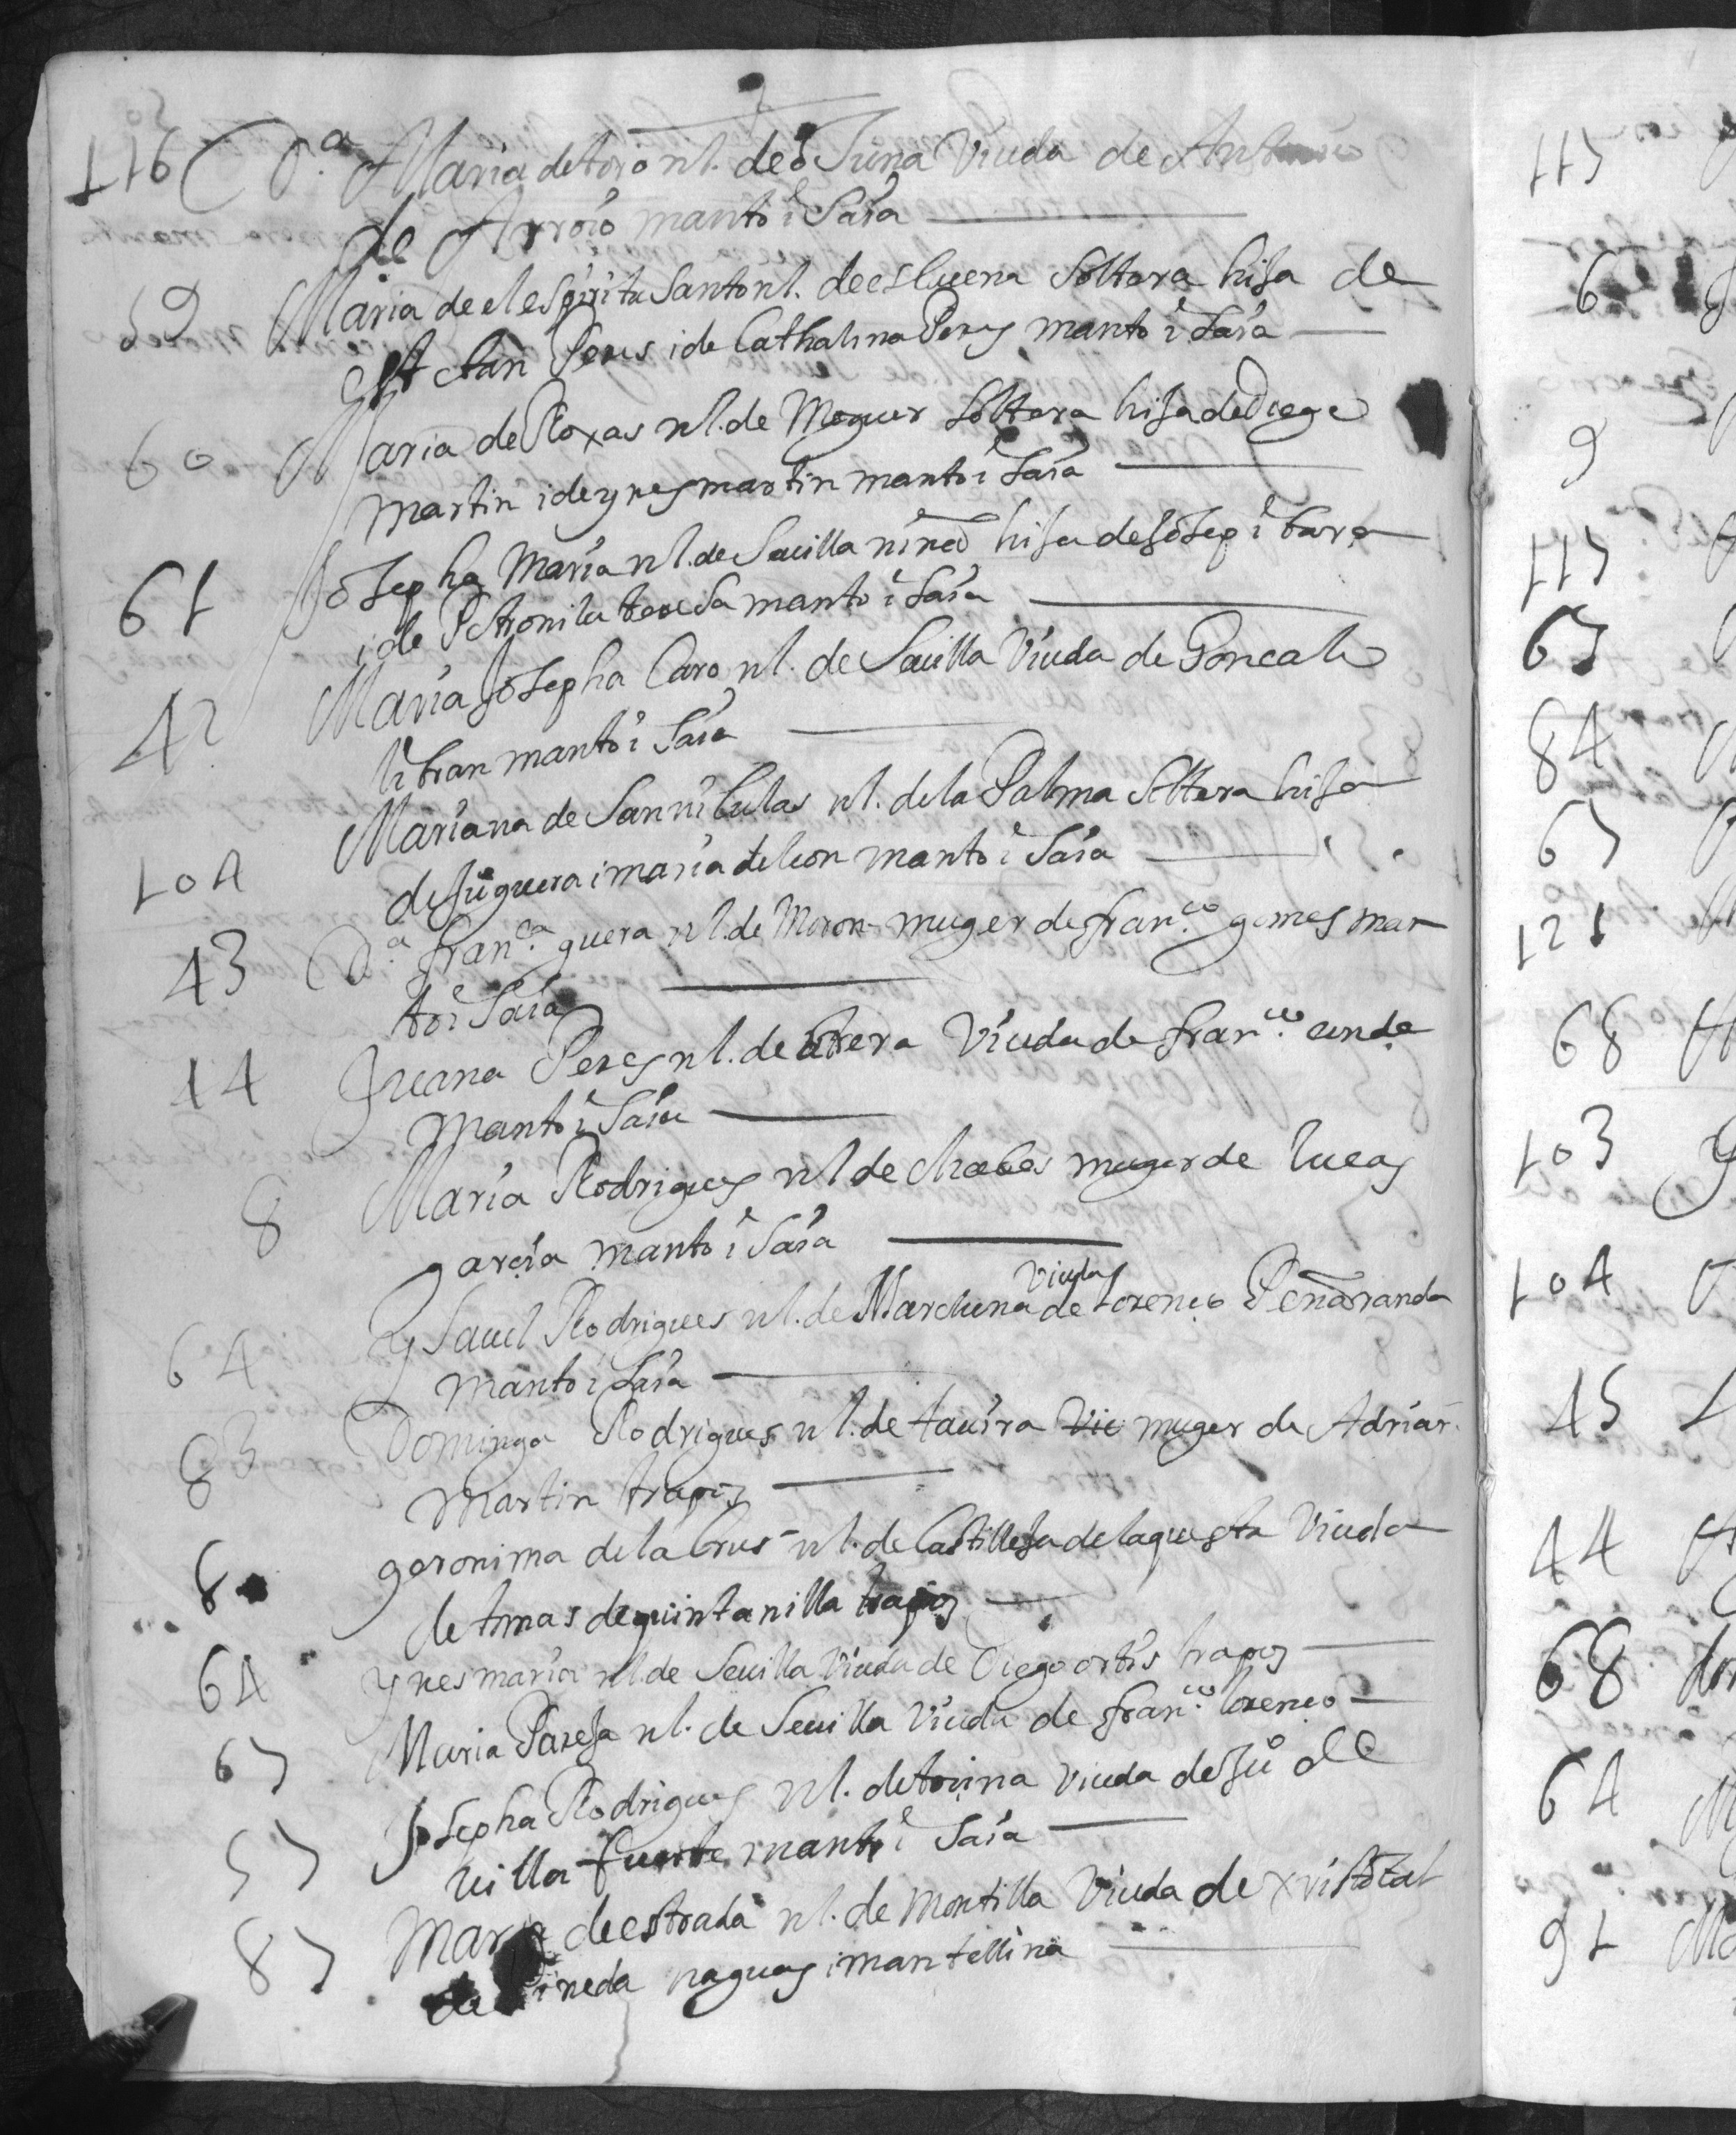 116 D.ª Maria de toro nl. de oSuna Viuda de Antonio
de Arroio manto i Saia
59 Maria de el espiritu Santo nl. de esluena Soltera hija de
Peres i de Cathalina Peres manto i Saia
60 Maria de Roxas nl. de Moguer Soltera hija de Diego
martin i de ynes martin manto i Saia
61 Josepha Maria nl. de Seuilla niña hija de Josep
i de Petronila teresa manto i Saia
42 Maria Josepha Caro nl. de Seuilla Viuda de Goncalo
manto i Saia
104 Mariana de San niculas nl. de la Palma Soltera hija
de Ju guera i maria de leon manto i Saia
43 D.ª fran.ca guera nl. de Moron muger de fran.co gomes man
to i Saia
44 Juana Peres nl. de utrera Viuda de fran.co conde
manto i Saia
8 Maria Rodrigues nl de muger de lucas
garcia manto i Saia
64 YSauel Rodrigues nl. de Marchena viuda de Lorenço Peñarranda
manto i Saia
83 Dominga Rodrigues nl. de tauira Vic muger de Adrian
Martin trapos
8 geronima de la Crus nl. de Castilleja de la questa Viuda
de tomas de quintanilla trapos
64 ynes maria nl. de Seuilla Viuda de Diego ortis trapos
67 Maria Pareja nl. de Seuilla Viuda de fran.co lorenço
57 Josepha Rodrigues nl. de tocina Viuda de Ju de
uilla fuerte manto i Saia
87 Maria de estrada nl. de Montilla Viuda de xpistobal
de Pineda naguas i mantellina
117
6
9
117
67
84
67
121
68
103
104
45
44
68
64
91